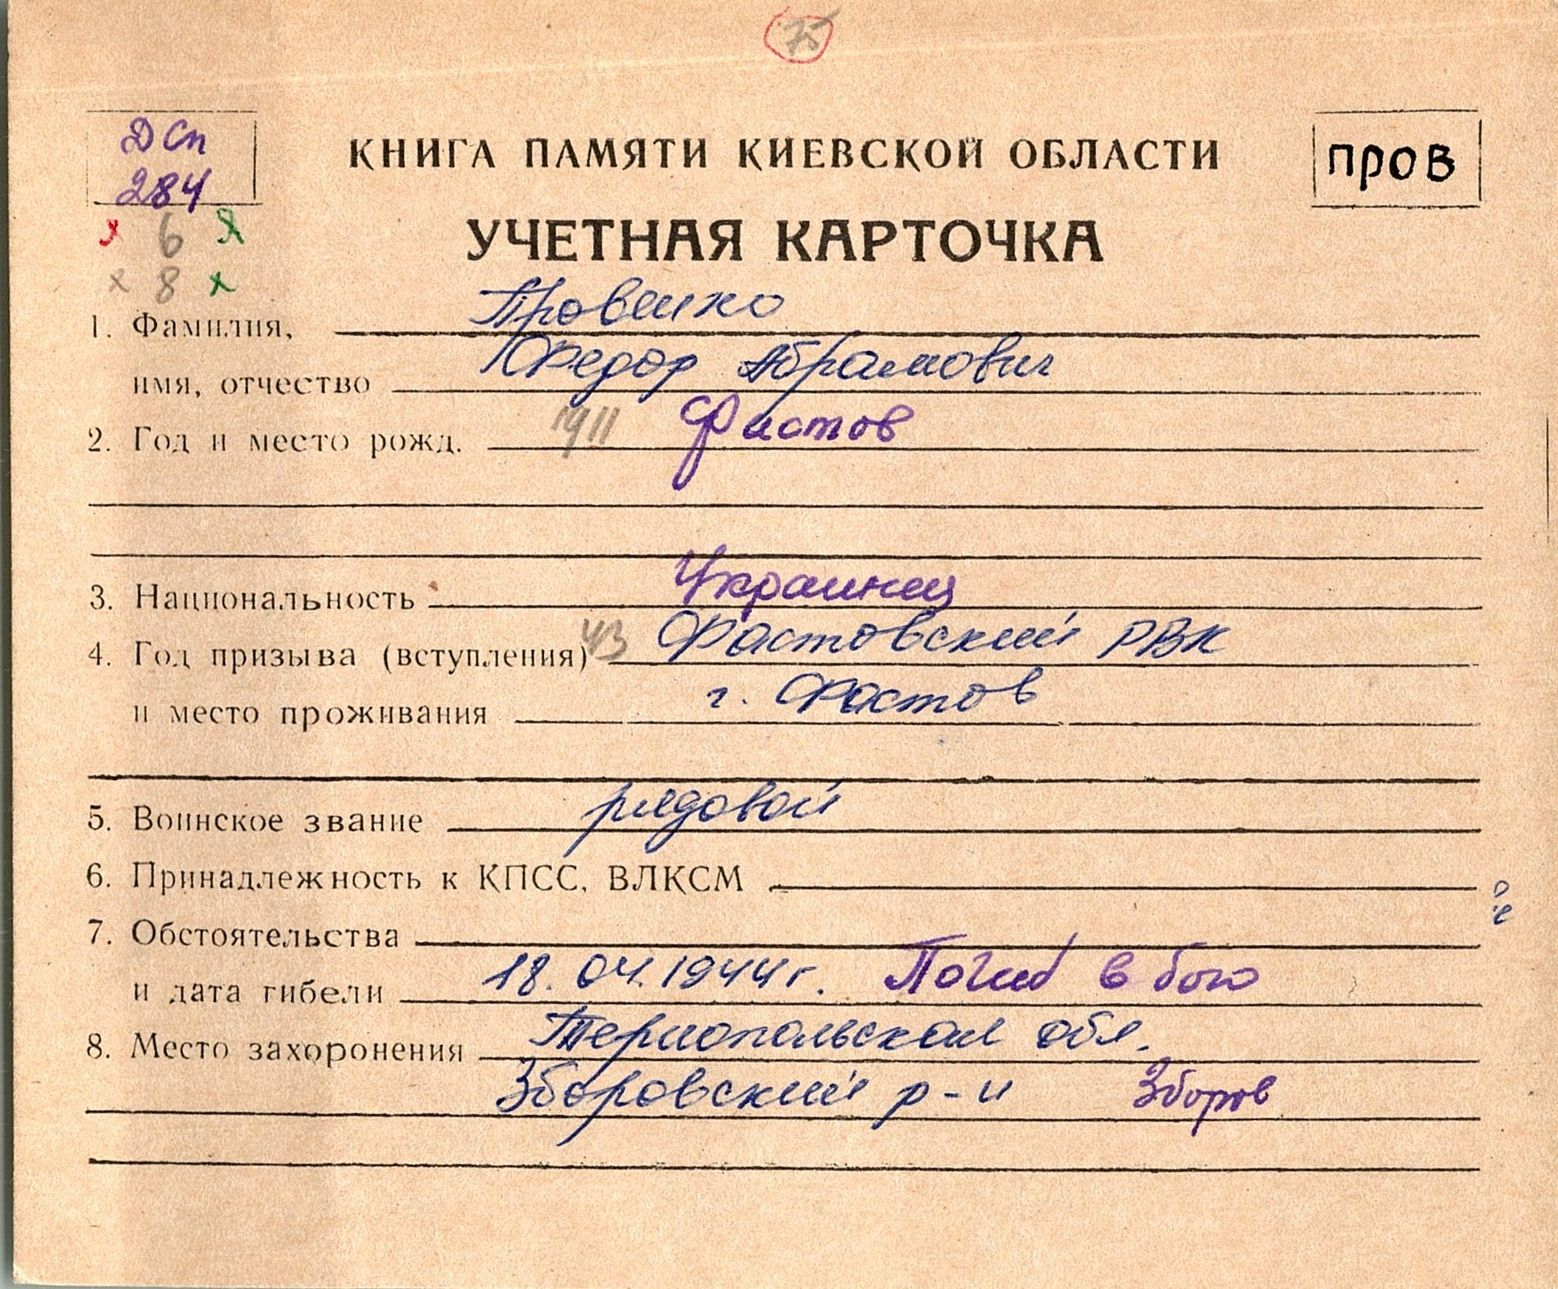 75
ДСп
284
КНИГА ПАМЯТИ КИЕВСКОЙ ОБЛАСТИ
пров
УЧЕТНАЯ КАРТОЧКА
6
8
1. Фамилия, Провенко
имя, отчество Федор Абрамович
2. Год и место рожд. 1911 Фастов
3. Национальность Украинец
4. Год призыва (вступления) 43 Фастовский РВК
и место проживания г. Фастов
5. Воинское звание рядовой
6. Принадлежность к КПСС, ВЛКСМ
7. Обстоятельства
и дата гибели 18.04.1944г. Погиб в бою
8. Место захоронения Тернопольская обл.
Зборовский р-н Зборов